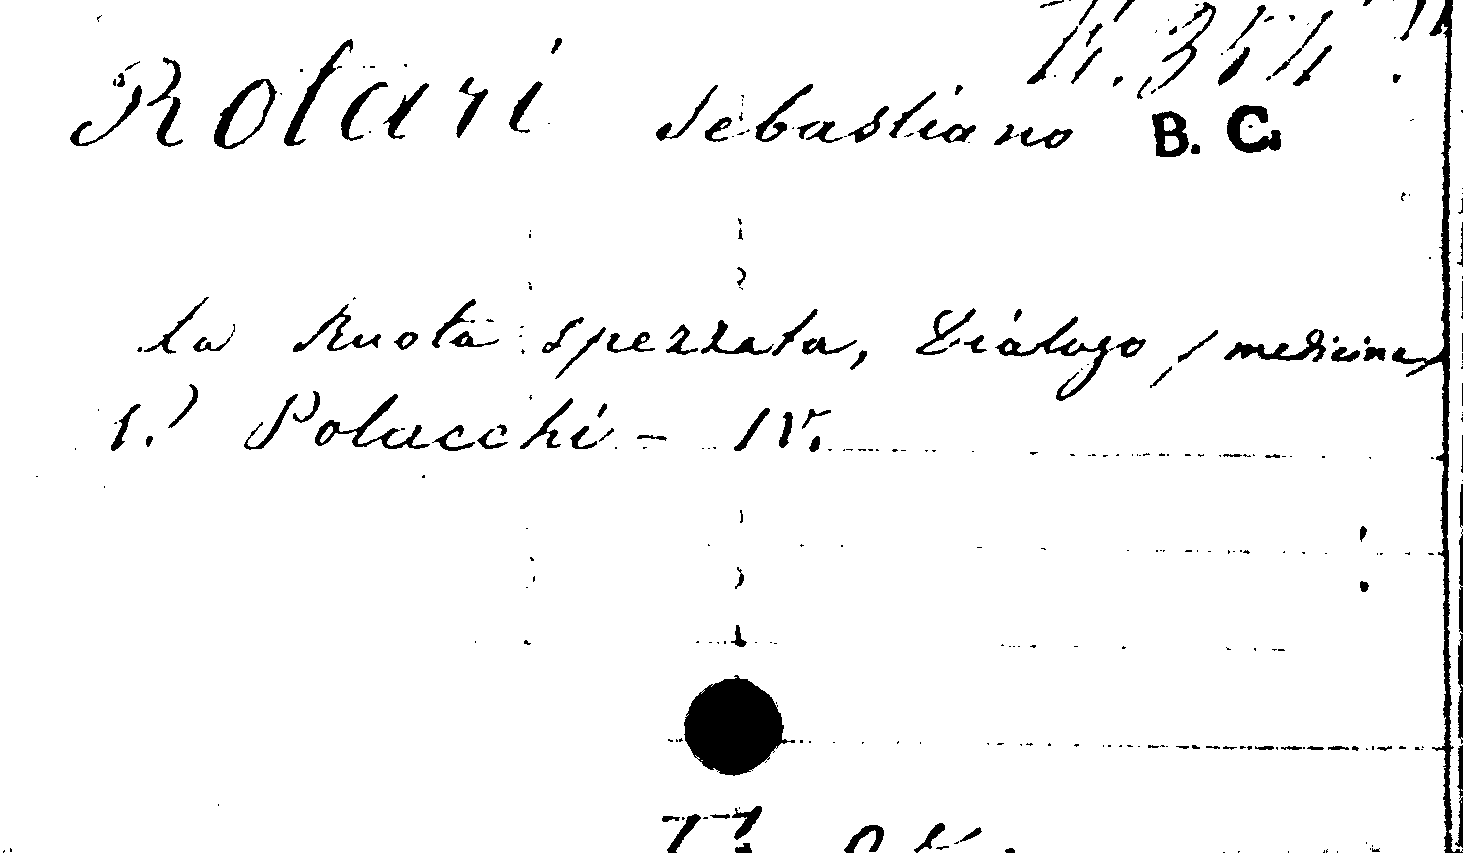 E. 354
Rotari Sebastiano B. C.
La Ruota spezzata, Diálogo (medicina)
Polacchi - IV.